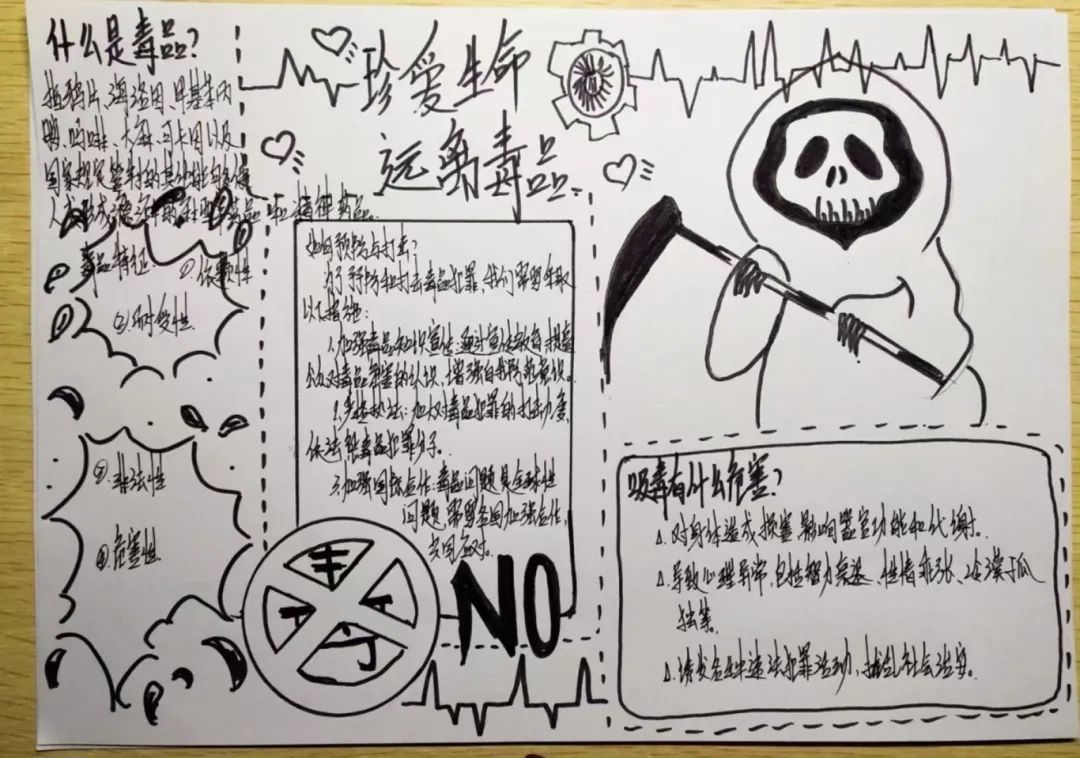 什么是毒品?
指鸦片、海洛因、甲基苯丙
胺、吗啡、大麻、可卡因以及
国家规定管制的其他能够使
人成形成瘾的麻醉药品和精神药品。
毒品特征:
①依赖性
②耐受性
③非法性
④危害性
珍爱生命
远离毒品
如何预防与打击?
为了预防和打击毒品犯罪,我们需要采取
以下措施:
1.加强毒品知识宣传:通过宣传教育提高
公众对毒品危害的认识,增强自我防范意识。
2.严格执法:加大对毒品犯罪的打击力度,
依法惩毒品犯罪分子。
3.加强国际合作:毒品问题是全球性
问题,需要各国加强合作,
共同应对。
NO
吸毒有什么危害?
对身体造成损害影响器官功能和代谢。
导致心理异常,包括智力衰退、性情乖张、冷漠
独等。
诱发各种违法犯罪活动,扰乱社会治安。